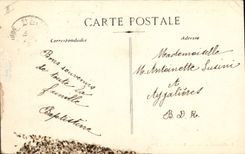 CARTE POSTALE
Correspondance
Bons souvenirs
de toute la
famille
Baptistine
Mademoiselle
M. Antoinette Susini
A
Aygalières
B. D. R.